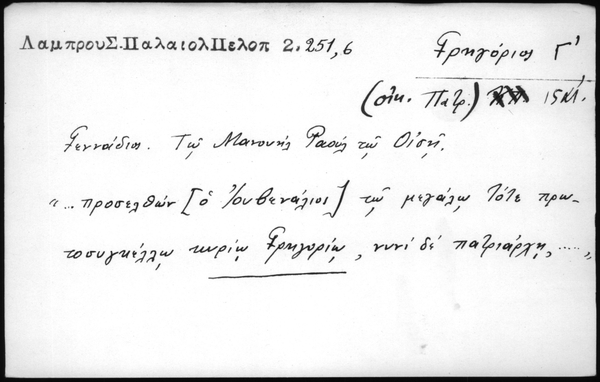 ΛαμπρουΣ.ΠαλαιολΠελοπ 2.251,6
Γρηγόριος Γ'
(οἰκ. Πατρ.) 15
Γεννάδιος. Τῷ Μανουὴλ Ραοὺλ τῷ Οἰσῆ.
«... προσελθών [ὁ Ἰουβενάλιος] τῷ μεγάλῳ τότε πρω-
τοσυγκέλλῳ κυρίῳ Γρηγορίῳ, νυνὶ δέ πατριάρχῃ, .....,